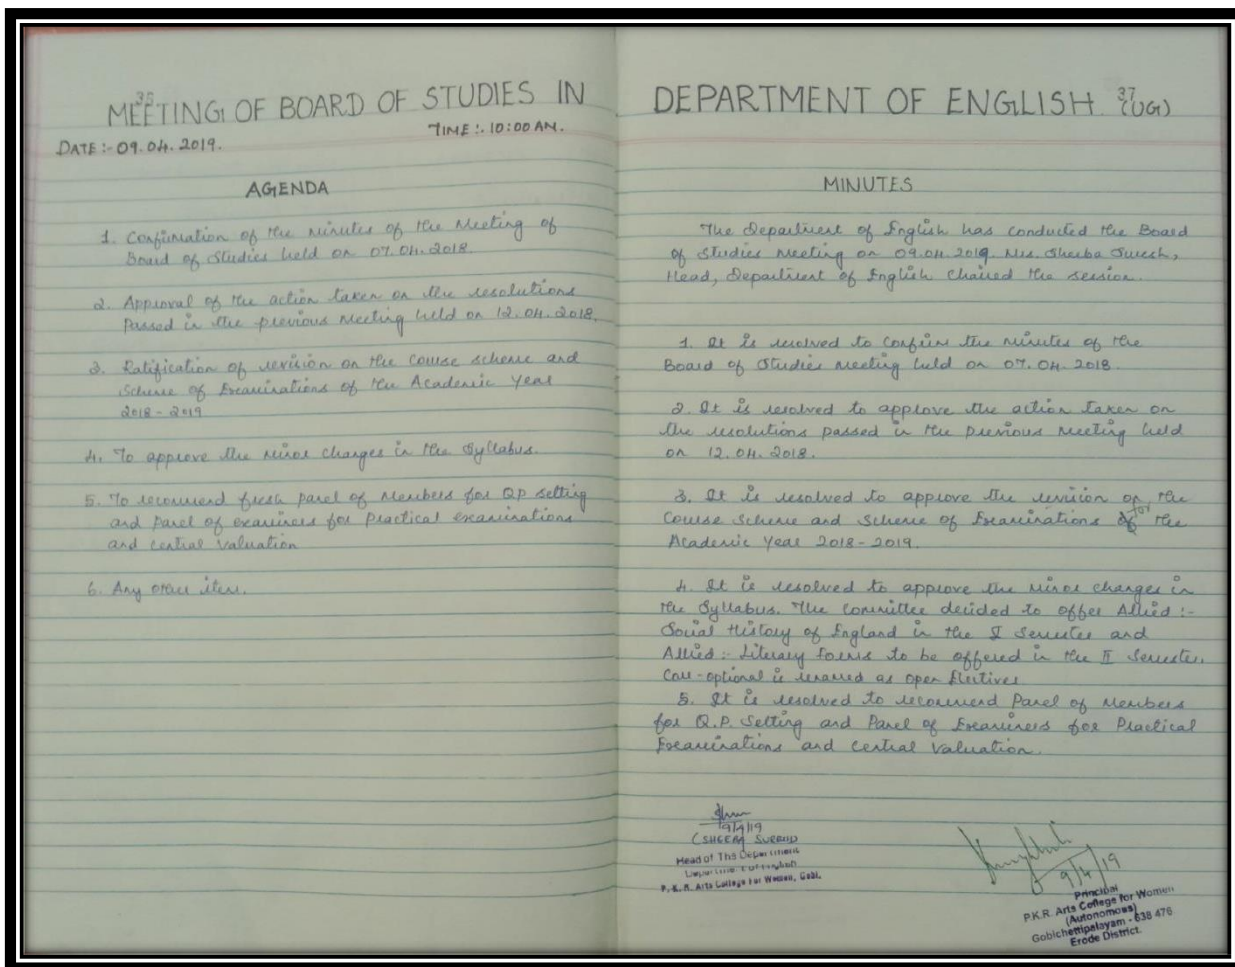 36
MEETING OF BOARD OF STUDIES IN
TIME:- 10:00 AM.
DATE:- 09.04.2019.
AGENDA
1. Confirmation of the Minutes of the Meeting of
Board of Studies held on 07.04.2018.
2. Approval of the action taken on the resolutions
passed in the previous Meeting held on 12.04.2018.
3. Ratification of revision on the Course scheme and
Scheme of Examinations of the Academic Year
2018-2019
4. To approve the minor changes in the Syllabus.
5. To recommend fresh panel of Members for QP setting
and panel of examiners for practical examinations
and central valuation
6. Any other item.
37
DEPARTMENT OF ENGLISH (UG)
MINUTES
The Department of English has conducted the Board
of Studies meeting on 09.04.2019. Mrs. Sheeba Suresh,
Head, Department of English chaired the session.
1. It is resolved to confirm the minutes of the
Board of Studies meeting held on 07.04.2018.
2. It is resolved to approve the action taken on
the resolutions passed in the previous meeting held
on 12.04.2018.
3. It is resolved to approve the revision on the
Course Scheme and Scheme of Examinations for the
Academic Year 2018-2019.
4. It is resolved to approve the minor changes in
the Syllabus. The committee decided to offer Allied:-
Social History of England in the I Semester and
Allied:- Literary forms to be offered in the II Semester.
Core-optional is renamed as open Electives
5. It is resolved to recommend Panel of Members
for Q.P. Setting and Panel of Examiners for Practical
Examinations and central Valuation.
9/4/19
(SHEEBA SURESH)
Head of The Department
Department of English
P.K.R. Arts College For Women, Gobi.
9/4/19
Principal
P.K.R. Arts College for Women
(Autonomous)
Gobichettipalayam - 638 476
Erode District.